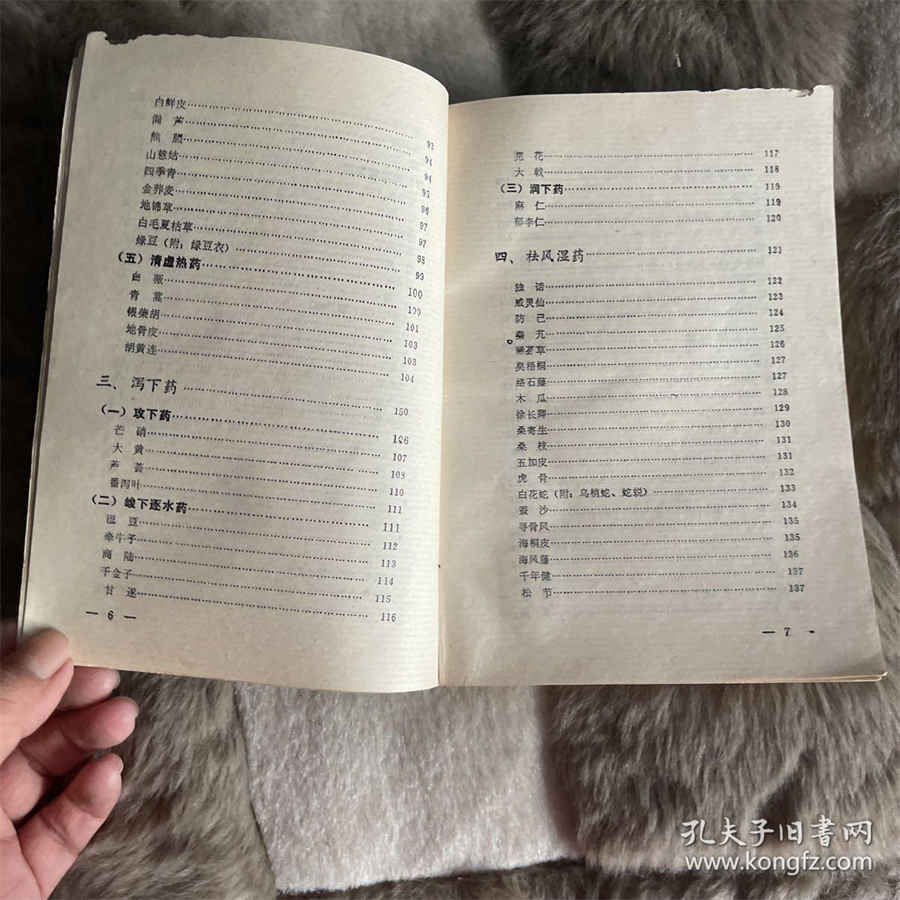 白鲜皮……93
漏 芦……94
熊 胆……94
山慈姑……95
四季青……95
金荞麦……96
地锦草……97
白毛夏枯草……97
绿豆（附：绿豆衣）……98
（五）清虚热药……99
白 薇……100
青 蒿……100
银柴胡……101
地骨皮……103
胡黄连……103
104
三、泻下药……150
（一）攻下药……106
芒 硝……107
大 黄……108
芦 荟……110
番泻叶……111
（二）峻下逐水药……111
巴 豆……112
牵牛子……113
商 陆……114
千金子……115
甘 遂……116
— 6 —
芫 花……117
大 戟……118
（三）润下药……119
麻 仁……119
郁李仁……120
四、祛风湿药……121
独 活……122
威灵仙……123
防 己……124
秦 艽……125
豨莶草……126
臭梧桐……127
络石藤……127
木 瓜……128
徐长卿……129
桑寄生……130
桑 枝……131
五加皮……131
虎 骨……132
白花蛇（附：乌梢蛇、蛇蜕）……133
蚕 沙……134
寻骨风……135
海桐皮……135
海风藤……136
千年健……137
松 节……137
— 7 -
孔夫子旧书网
www.kongfz.com